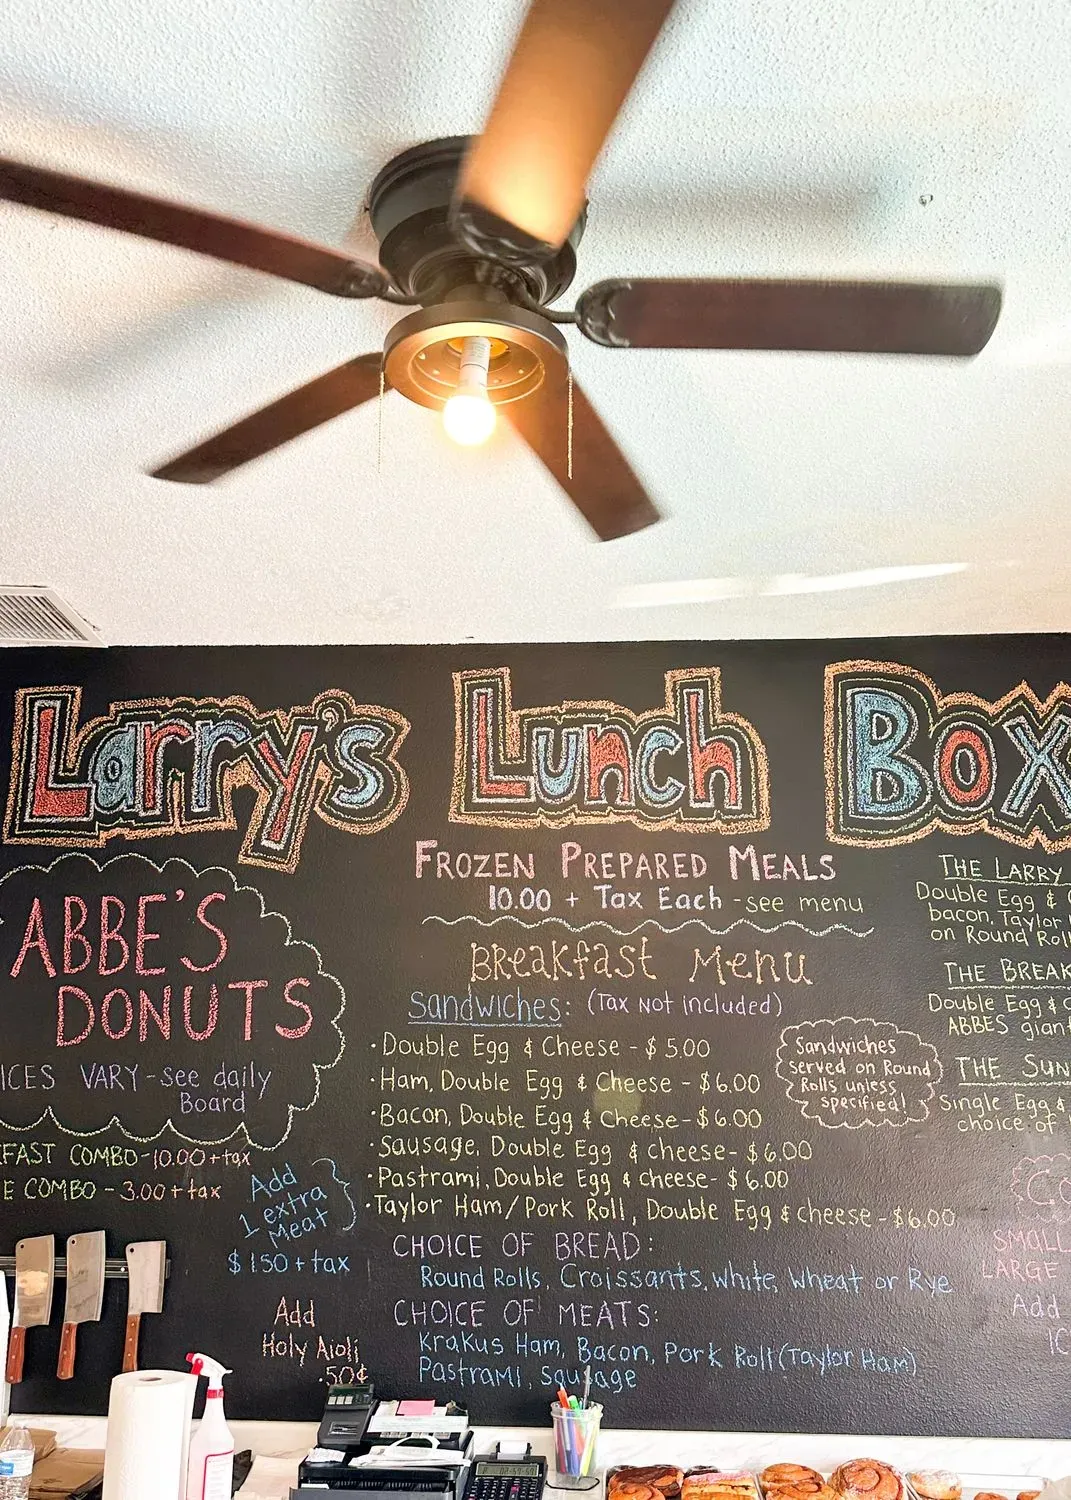 Larry's Lunch Box
ABBE'S
DONUTS
ICES VARY - See daily
Board
FAST COMBO - 10.00 + tax
E COMBO - 3.00 + tax
Add
1 extra
Meat
$1.50 + tax
Add
Holy Aioli
.50¢
FROZEN PREPARED MEALS
10.00 + Tax Each - see menu
Breakfast Menu
Sandwiches: (Tax not included)
• Double Egg & Cheese - $5.00
• Ham, Double Egg & Cheese - $6.00
• Bacon, Double Egg & Cheese - $6.00
• Sausage, Double Egg & cheese - $6.00
• Pastrami, Double Egg & Cheese - $6.00
• Taylor Ham/Pork Roll, Double Egg & cheese - $6.00
Sandwiches
served on Round
Rolls unless
specified!
CHOICE OF BREAD:
Round Rolls, Croissants, white, wheat or Rye
CHOICE OF MEATS:
Krakus Ham, Bacon, Pork Roll (Taylor Ham)
Pastrami, sausage
THE LARRY
Double Egg &
bacon, Taylor
on Round Roll
THE BREAK
Double Egg &
ABBES giant
THE SUN
Single Egg &
choice of
SMALL
LARGE
Add
IC